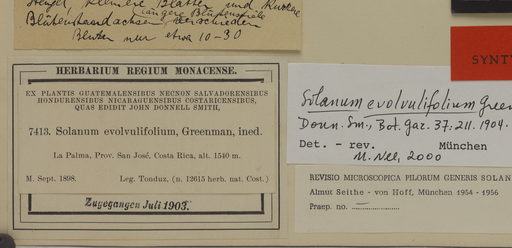 Stengel, kleinere Blätter und kürzere
längere Blütenstiele
Blütenstandachsen, verschieden
Blüten nur etwa 10-30
HERBARIUM REGIUM MONACENSE.
EX PLANTIS GUATEMALENSIBUS NECNON SALVADORENSIBUS
HONDURENSIBUS NICARAGUENSIBUS COSTARICENSIBUS,
QUAS EDIDIT JOHN DONNELL SMITH,
7413. Solanum evolvulifolium, Greenman, ined.
La Palma, Prov. San José, Costa Rica, alt. 1540 m.
M. Sept. 1898. Leg. Tonduz, (n. 12615 herb. nat. Cost.)
Zugegangen Juli 1903.
SYNT
Solanum evolvulifolium Green
Donn. Sm., Bot. Gaz. 37: 211. 1904.
Det. - rev. München
M. Nee, 2000
REVISIO MICROSCOPICA PILORUM GENERIS SOLAN
Almut Seithe - von Hoff, München 1954 - 1956
Praep. no.